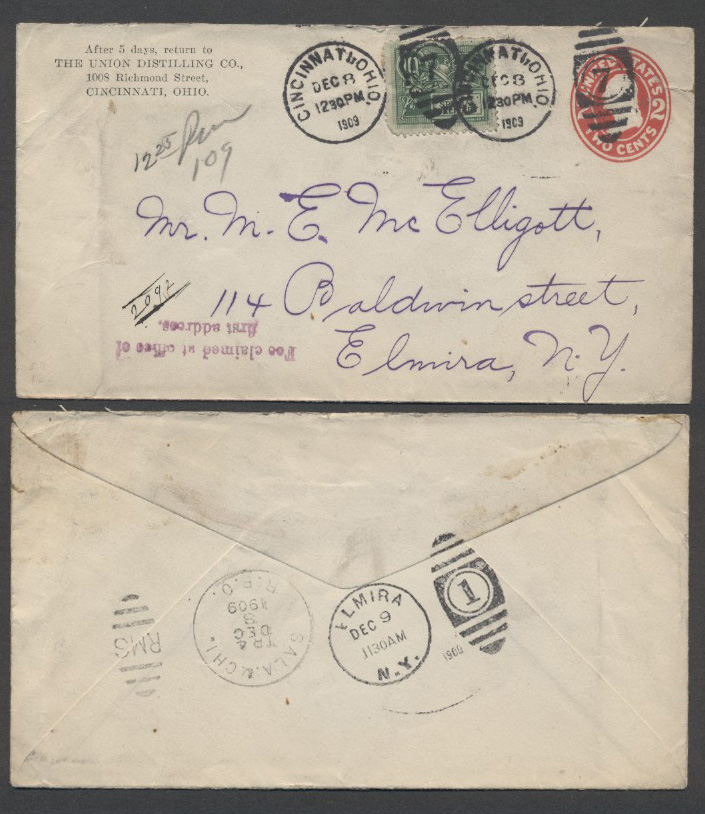 After 5 days, return to
THE UNION DISTILLING CO.,
1008 Richmond Street,
CINCINNATI, OHIO.
CINCINNATI, OHIO
DEC 8
1230PM
1909
10
7
CINCINNATI, OHIO
DEC 8
1230PM
1909
7
UNITED STATES
2
TWO CENTS
12 25 Pm
109
Mr. M. E. McElligott,
2092
114 Baldwin street,
Elmira, N.Y.
Fee claimed at office of
first address.
RMS
GALA. & CHI.
TR 4
DEC
8
1909
R.P.O.
ELMIRA
DEC 9
1130AM
N.Y.
1
1909